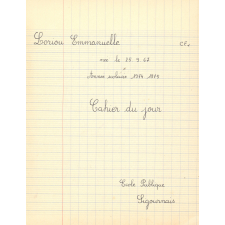 Loriou Emmanuelle CP.
née le 28 9 67
Année scolaire 1974 1974
Cahier du jour
Ecole Publique
Sigournais